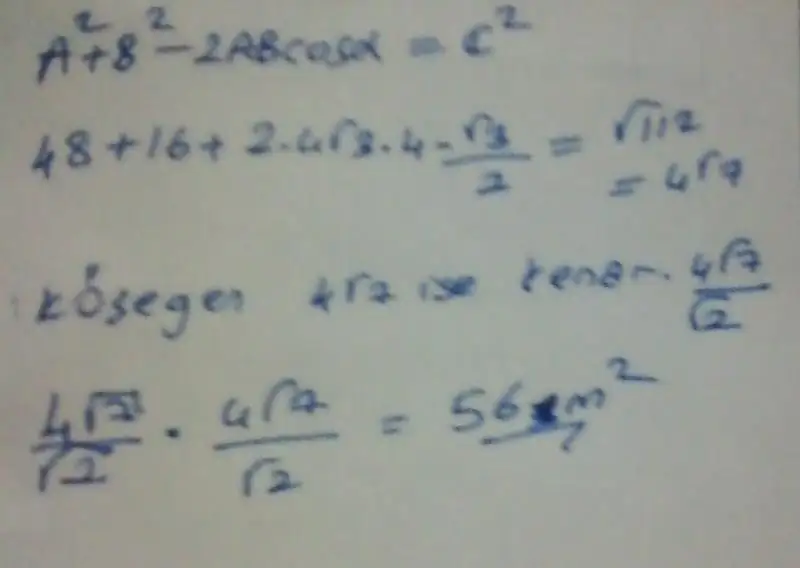 A²+B²-2ABcosα = C²
48+16+2·4√3·4·√3/2 = √112
= 4√7
köşegen 4√7 ise kenar 4√7/√2
4√7/√2 · 4√7/√2 = 56 cm²